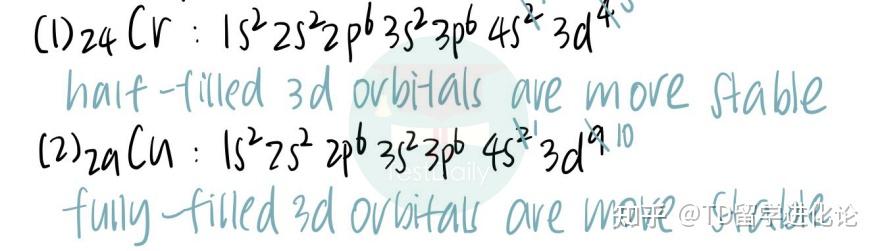 (1)₂₄Cr : 1s²2s²2p⁶3s²3p⁶4s²⁻¹3d⁴⁵
half-filled 3d orbitals are more stable
(2)₂₉Cu : 1s²2s²2p⁶3s²3p⁶4s²¹3d⁹10
fully-filled 3d orbitals are more stable
知乎 @TD留学进化论